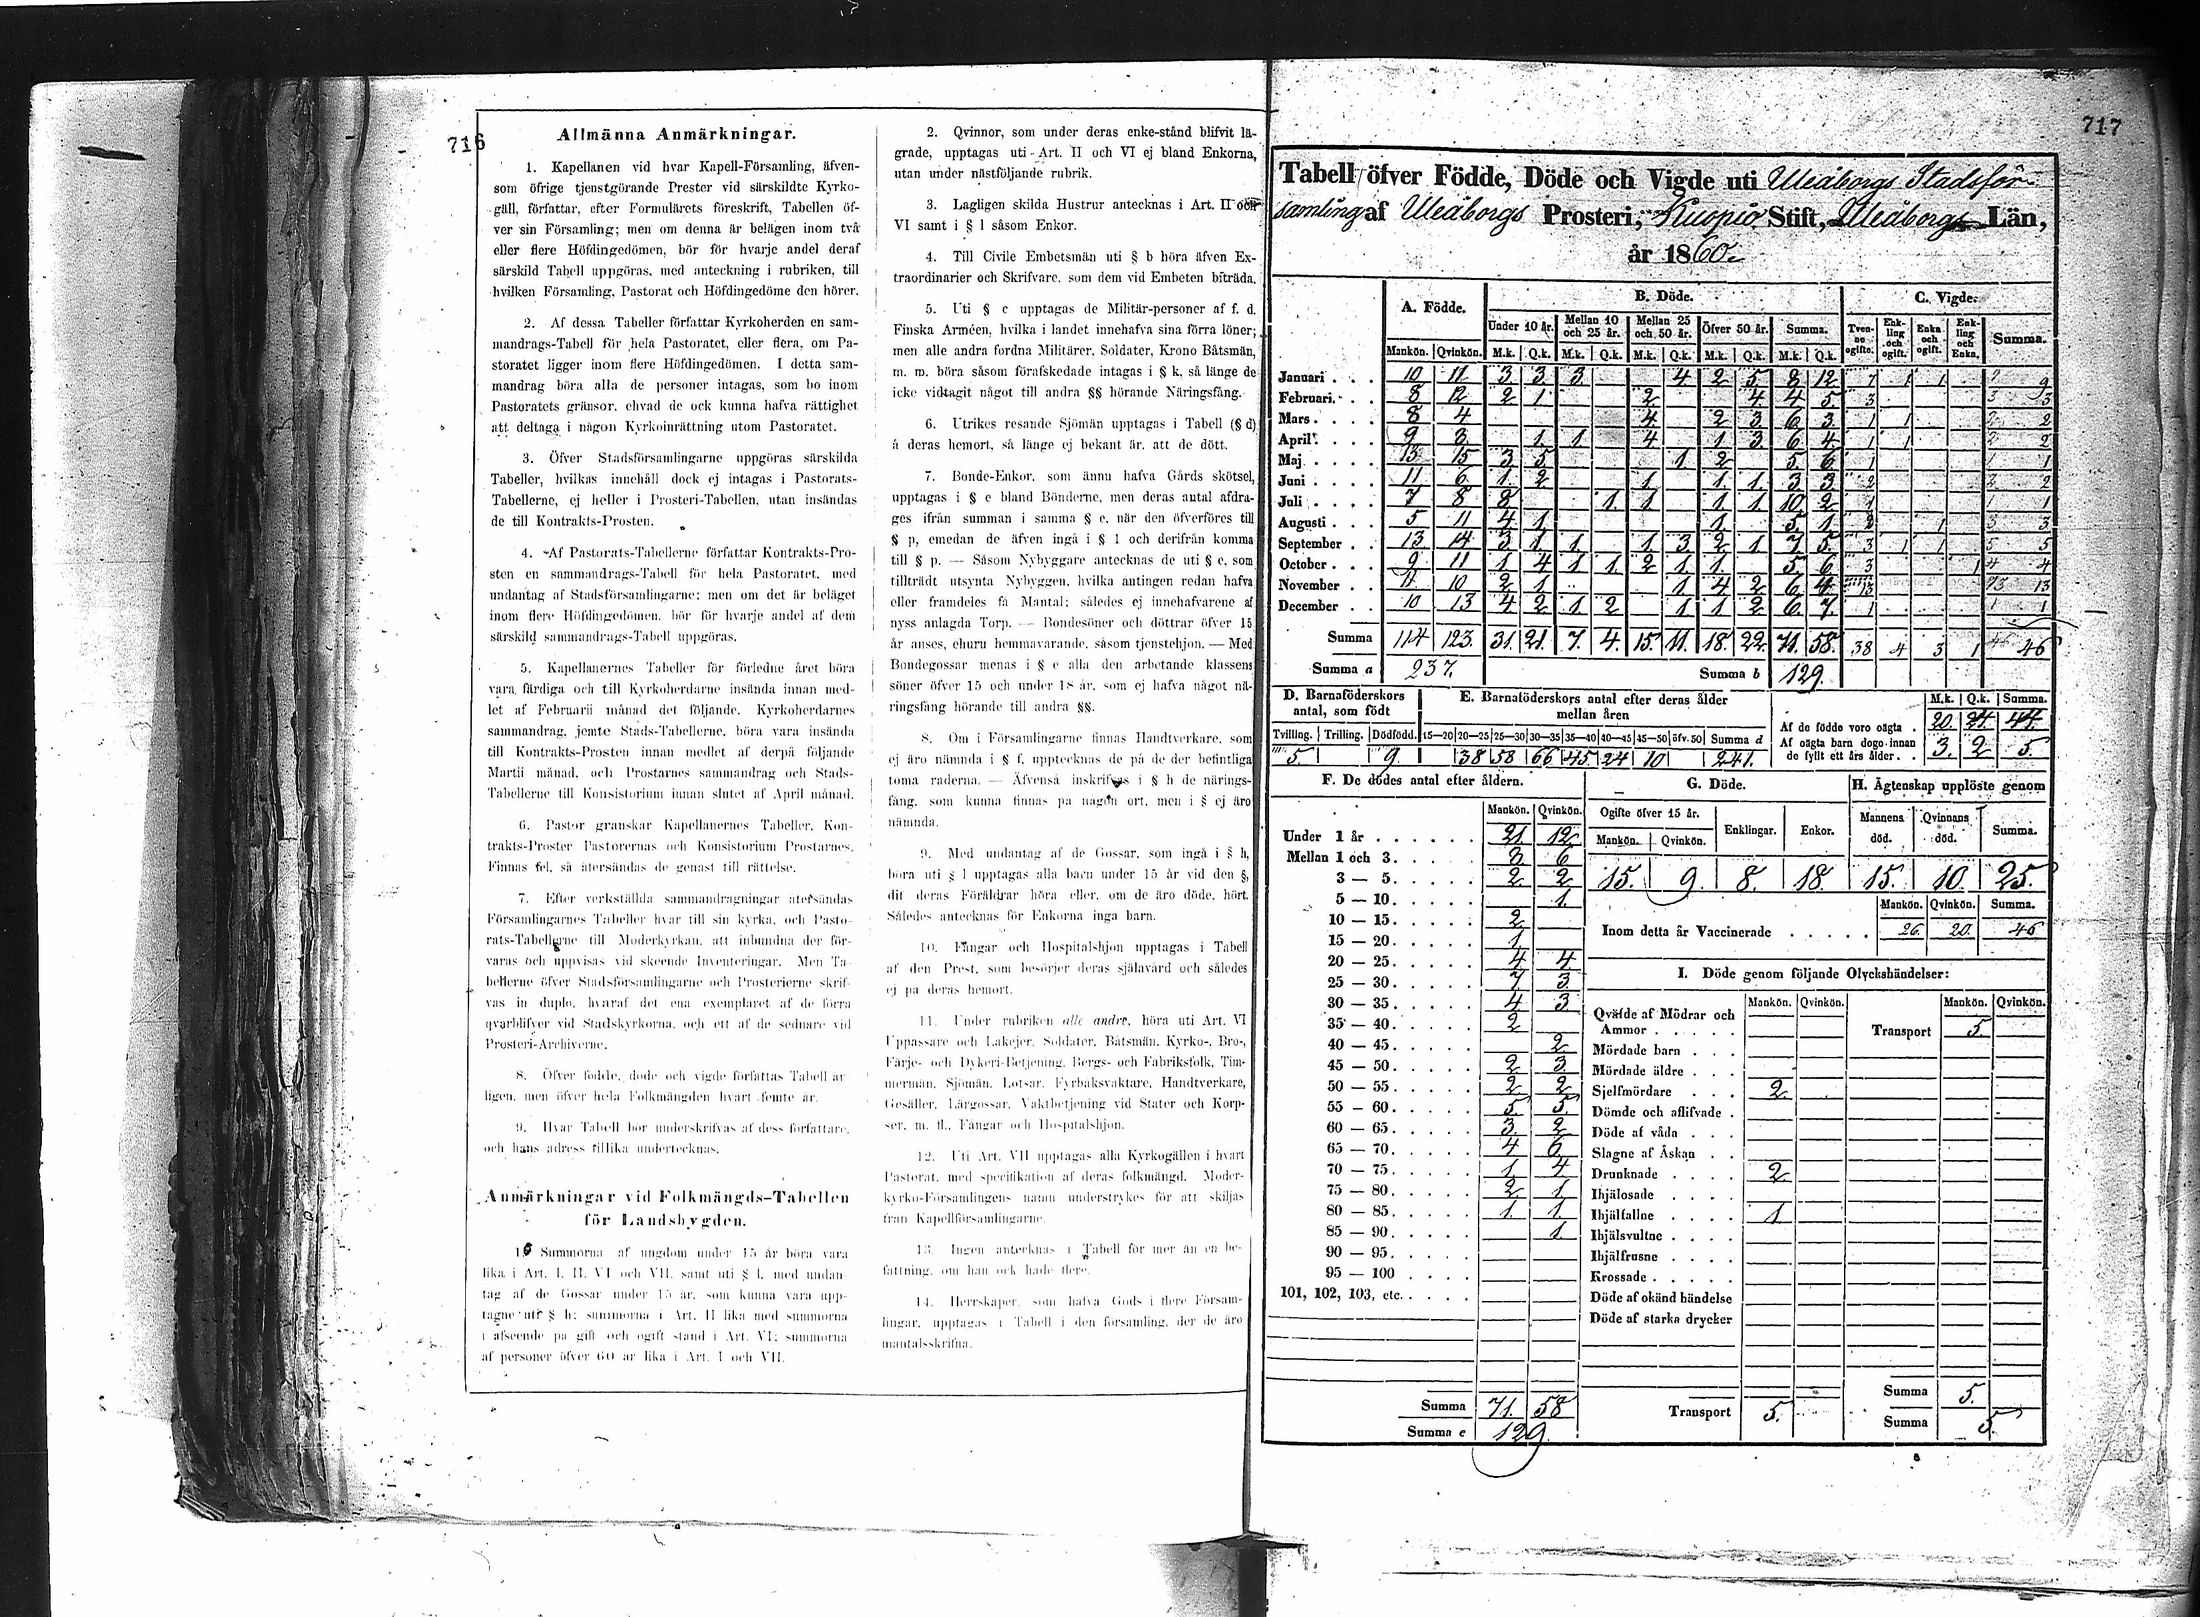 716
Allmänna Anmärkningar.
1. Kapellanen vid hvar Kapell-Församling, äfven-
som öfrige tjenstgörande Prester vid särskildte Kyrko-
gäll, författar, efter Formulärets föreskrift, Tabellen öf-
ver sin Församling; men om denna är belägen inom två
eller flere Höfdingedömen, bör för hvarje andel deraf
särskild Tabell uppgöras, med anteckning i rubriken, till
hvilken Församling, Pastorat och Höfdingedöme den hörer.
2. Af dessa Tabeller författar Kyrkoherden en sam-
mandrags-Tabell för hela Pastoratet, eller flera, om Pa-
storatet ligger inom flere Höfdingedömen. I detta sam-
mandrag böra alla de personer intagas, som bo inom
Pastoratets gränsor, ehvad de ock kunna hafva rättighet
att deltaga i någon Kyrkoinrättning utom Pastoratet.
3. Öfver Stadsförsamlingarne uppgöras särskilda
Tabeller, hvilkas innehåll dock ej intagas i Pastorats-
Tabellerne, ej heller i Prosteri-Tabellen, utan insändas
de till Kontrakts-Prosten.
4. Af Pastorats-Tabellerne författar Kontrakts-Pro-
sten en sammandrags-Tabell för hela Pastoratet, med
undantag af Stadsförsamlingarne; men om det är beläget
inom flere Höfdingedömen, bör för hvarje andel af dem
särskild sammandrags-Tabell uppgöras.
5. Kapellanernes Tabeller för förledne året böra
vara färdiga och till Kyrkoherdarne insända innan med-
let af Februarii månad det följande. Kyrkoherdarnes
sammandrag, jemte Stads-Tabellerne, böra vara insända
till Kontrakts-Prosten innan medlet af derpå följande
Martii månad, och Prostarnes sammandrag och Stads-
Tabellerne till Konsistorium innan slutet af April månad.
6. Pastor granskar Kapellanernes Tabeller, Kon-
trakts-Proster Pastorernas och Konsistorium Prostarnes.
Finnas fel, så återsändas de genast till rättelse.
7. Efter verkställda sammandragningar återsändas
Församlingarnes Tabeller hvar till sin kyrka, och Pasto-
rats-Tabellerne till Moderkyrkan, att inbundna der för-
varas och uppvisas vid skeende Inventeringar. Men Ta-
bellerne öfver Stadsförsamlingarne och Prosterierne skrif-
vas in duplo, hvaraf det ena exemplaret af de förra
qvarblifver vid Stadskyrkorna, och ett af de sednare vid
Prosteri-Archiverne.
8. Öfver födde, döde och vigde författas Tabell år-
ligen, men öfver hela Folkmängden hvart femte år.
9. Hvar Tabell bör underskrifvas af dess författare,
och hans adress tillika undertecknas.
Anmärkningar vid Folkmängds-Tabellen
för Landsbygden.
1. Summorna af ungdom under 15 år böra vara
lika i Art. I, II, VI och VII, samt uti § l, med undan-
tag af de Gossar under 15 år, som kunna vara upp-
tagne uti § h; summorna i Art. II lika med summorna
i afseende på gift och ogift stånd i Art. VI; summorna
af personer öfver 60 år lika i Art. I och VII.
2. Qvinnor, som under deras enke-stånd blifvit lä-
grade, upptagas uti Art. II och VI ej bland Enkorna,
utan under nästföljande rubrik.
3. Lagligen skilda Hustrur antecknas i Art. II och
VI samt i § l såsom Enkor.
4. Till Civile Embetsmän uti § b höra äfven Ex-
traordinarier och Skrifvare, som dem vid Embeten biträda.
5. Uti § c upptagas de Militär-personer af f. d.
Finska Arméen, hvilka i landet innehafva sina förra löner;
men alle andra fordna Militärer, Soldater, Krono Båtsmän,
m. m. böra såsom förafskedade intagas i § k, så länge de
icke vidtagit något till andra §§ hörande Näringsfång.
6. Utrikes resande Sjömän upptagas i Tabell (§ d)
å deras hemort, så länge ej bekant är, att de dött.
7. Bonde-Enkor, som ännu hafva Gårds skötsel,
upptagas i § e bland Bönderne, men deras antal afdra-
ges ifrån summan i samma § e, när den öfverföres till
§ p, emedan de äfven ingå i § l och derifrån komma
till § p. — Såsom Nybyggare antecknas de uti § e, som
tillträdt utsynta Nybyggen, hvilka antingen redan hafva
eller framdeles få Mantal; således ej innehafvarene af
nyss anlagda Torp. — Bondesöner och döttrar öfver 15
år anses, ehuru hemmavarande, såsom tjenstehjon. — Med
Bondegossar menas i § e alla den arbetande klassens
söner öfver 15 och under 18 år, som ej hafva något nä-
ringsfång hörande till andra §§.
8. Om i Församlingarne finnas Handtverkare, som
ej äro nämnda i § f, upptecknas de på de der befintliga
toma raderna. — Äfvenså inskrifvas i § h de närings-
fång, som kunna finnas på någon ort, men i § ej äro
nämnda.
9. Med undantag af de Gossar, som ingå i § h,
böra uti § l upptagas alla barn under 15 år vid den §,
dit deras Föräldrar höra eller, om de äro döde, hört.
Således antecknas för Enkorna inga barn.
10. Fångar och Hospitalshjon upptagas i Tabell
af den Prest, som besörjer deras själavård och således
ej på deras hemort.
11. Under rubriken alle andre, höra uti Art. VI
Uppassare och Lakejer, Soldater, Båtsmän, Kyrko-, Bro-,
Färje- och Dykeri-Betjening, Bergs- och Fabriksfolk, Tim-
mermän, Sjömän, Lotsar, Fyrbåksvaktare, Handtverkare,
Gesäller, Lärgossar, Vaktbetjening vid Stater och Korp-
ser, m. fl., Fångar och Hospitalshjon.
12. Uti Art. VII upptagas alla Kyrkogällen i hvart
Pastorat, med specifikation af deras folkmängd. Moder-
kyrko-Församlingens namn understrykes för att skiljas
från Kapellförsamlingarne.
13. Ingen antecknas i Tabell för mer än en be-
fattning, om han ock hade flere.
14. Herrskaper, som hafva Gods i flere Försam-
lingar, upptagas i Tabell i den församling, der de äro
mantalsskrifna.
717
Tabell öfver Födde, Döde och Vigde uti Uleåborgs Stadsför-
samling af Uleåborgs Prosteri, Kuopio Stift, Uleåborgs Län,
år 1860.
A. Födde. B. Döde. C. Vigde.
Under 10 år. Mellan 10 och 25 år. Mellan 25 och 50 år. Öfver 50 år. Summa. Tven-ne ogifte. Enk-ling och ogift. Enka och ogift. Enk-ling och Enka. Summa.
Mankön. Qvinkön. M.k. Q.k. M.k. Q.k. M.k. Q.k. M.k. Q.k. M.k. Q.k.
Januari . . . 10 11 3 3 3 4 2 5 8 12 7 1 1 9 9
Februari. . . 8 12 2 1 2 4 4 5 3 3 3
Mars . . . . 8 4 4 2 3 6 3 1 1 2 2
April . . . . 9 8 1 1 4 1 3 6 4 1 1 2 2
Maj . . . . 13 15 3 5 1 2 5 6 1 1 1
Juni . . . . 11 6 1 2 1 1 1 3 3 2 2 2
Juli . . . . 7 8 8 1 1 1 1 10 2 1 1 1
Augusti . . . 5 11 4 1 1 5 1 2 1 3 3
September . . 13 14 3 1 1 1 3 2 1 7 5 3 1 1 5 5
October . . . 9 11 1 4 1 1 2 1 1 5 6 3 1 4 4
November . . 11 10 2 1 1 4 2 6 4 13 13 13
December . . 10 13 4 2 1 2 1 1 2 6 7 1 1 1
Summa 114 123. 31. 21. 7. 4. 15. 11. 18. 22. 71. 58. 38 4 3 1 46 46
Summa a 237. Summa b 129.
D. Barnaföderskors antal, som födt
E. Barnaföderskors antal efter deras ålder mellan åren
M.k. Q.k. Summa.
Af de födde voro oägta . 20. 24. 44.
Af oägta barn dogo innan de fyllt ett års ålder. . 3. 2 5
Tvilling. Trilling. Dödfödd. 15—20 20—25 25—30 30—35 35—40 40—45 45—50 öfv. 50 Summa d
5 9. 38 58 66 45 24 10 241.
F. De dödes antal efter åldern.
Mankön. Qvinkön.
Under 1 år . . . . . . 21. 12.
Mellan 1 och 3. . . . . 3 6
3 — 5. . . . . 2. 2
5 — 10. . . . . 1.
10 — 15. . . . . 2
15 — 20. . . . . 1
20 — 25. . . . . 4 4
25 — 30. . . . . 7 3
30 — 35. . . . . 4 3
35 — 40. . . . . 2
40 — 45. . . . . 2
45 — 50. . . . . 2 3
50 — 55. . . . . 2 2
55 — 60. . . . . 5 5
60 — 65. . . . . 3 2
65 — 70. . . . . 4 6
70 — 75. . . . . 1 4
75 — 80. . . . . 2 1
80 — 85. . . . . 1. 1.
85 — 90. . . . . 1
90 — 95. . . . .
95 — 100 . . . .
101, 102, 103, etc. . . . .
Summa 71. 58
Summa e 129.
G. Döde.
Ogifte öfver 15 år. Enklingar. Enkor.
Mankön. Qvinkön.
15. 9. 8. 18.
H. Ägtenskap upplöste genom
Mannens död. Qvinnans död. Summa.
15. 10. 25.
Mankön. Qvinkön. Summa.
Inom detta år Vaccinerade . . . . . 26. 20. 46
I. Döde genom följande Olyckshändelser:
Mankön. Qvinkön. Mankön. Qvinkön.
Qväfde af Mödrar och
Ammor . . . . . Transport 5
Mördade barn . . .
Mördade äldre . . .
Sjelfmördare . . . 2
Dömde och aflifvade .
Döde af våda . . .
Slagne af Åskan . .
Drunknade . . . . 2
Ihjälosade . . . .
Ihjälfallne . . . . 1
Ihjälsvultne . . . .
Ihjälfrusne . . . .
Krossade . . . . .
Döde af okänd händelse
Döde af starka drycker
Summa 5.
Transport 5. Summa 5.